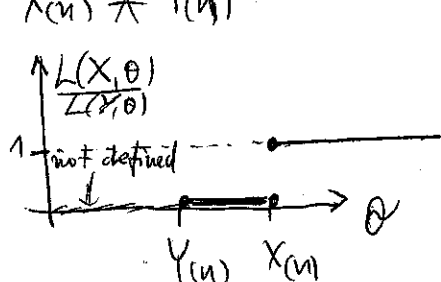 X(n) ≠ Y(n)
L(X,θ)
L(Y,θ)
1
not defined
θ
Y(n) X(n)